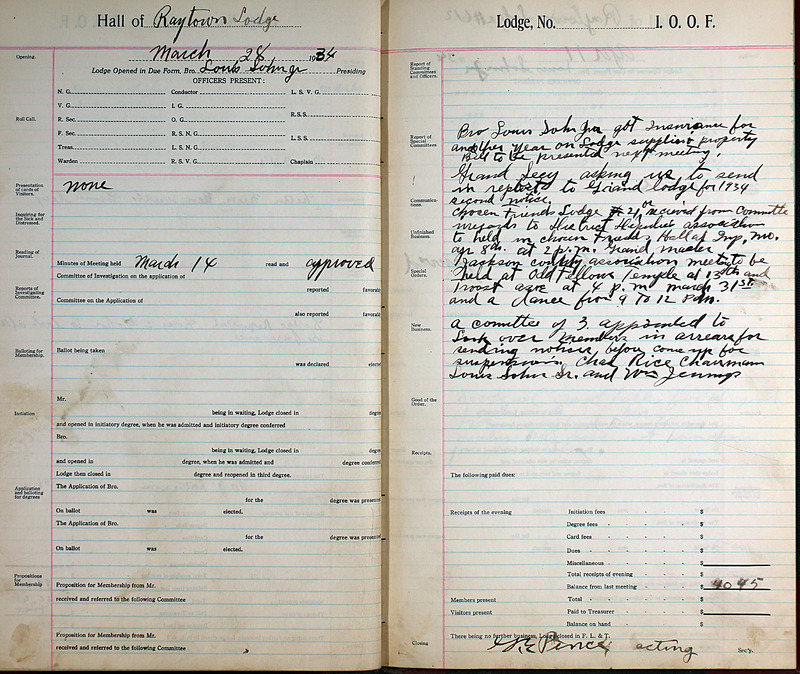 Hall of Raytown Lodge
Opening.
March 28 1934
Lodge Opened in Due Form, Bro. Louis Sohn Jr Presiding
OFFICERS PRESENT:
Roll Call.
N. G. Conductor L. S. V. G.
V. G. I. G.
R. Sec. O. G. R.S.S.
F. Sec. R. S. N. G.
Treas. L. S. N. G. L.S.S.
Warden R. S. V. G. Chaplain
Presentation of cards of Visitors.
none
Inquiring for the Sick and Distressed.
Reading of Journal.
Minutes of Meeting held March 14 read and approved
Committee of Investigation on the application of
Reports of Investigating Committee.
reported favorab
Committee on the Application of
also reported favorab
Balloting for Membership.
Ballot being taken
was declared elect
Mr.
Initiation
being in waiting, Lodge closed in degre
and opened in initiatory degree, when he was admitted and initiatory degree conferred
Bro.
being in waiting, Lodge closed in degre
and opened in degree, when he was admitted and degree conferre
Lodge then closed in degree and reopened in third degree.
Application and balloting for degrees
The Application of Bro.
for the degree was presente
On ballot was elected.
The Application of Bro.
for the degree was presente
On ballot was elected.
Propositions for Membership
Proposition for Membership from Mr.
received and referred to the following Committee
Proposition for Membership from Mr.
received and referred to the following Committee
Lodge, No. I. O. O. F.
Report of Standing Committees and Officers.
Report of Special Committees
Bro Louis Sohn Jr. got Insurance for
another year on Lodge supplies & property
Bill to be presented next meeting.
Grand Secy asking us to send
in reports to Grand lodge for 1934
Communications.
second notice.
chosen Friends Lodge # 21, recieved from Committe
Unfinished Business.
regards to District association
to held in chosen Friends, Mo.
apr 8th. at 2 p.m. Grand master
Special Orders.
Jackson county association meets to be
held at Odd Fellows Temple at 13th and
Troost ave at 4 p.m march 31st
and a dance from 9 to 12 P.m.
New Business.
a comittee of 3 appointed to
look over members in arrears for
sending notices, before come up for
suspension. Chas Rice Chairman
Louis Sohn Sr. and Wm Jennings
Good of the Order.
Receipts.
The following paid dues:
Receipts of the evening Initiation fees $
Degree fees $
Card fees $
Dues $
Miscellaneous $
Total receipts of evening $
Balance from last meeting $ 40 45
Members present Total $
Visitors present Paid to Treasurer $
Balance on hand $
Closing
There being no further business, Lodge closed in F. L. & T.
Pence acting Sec'y.